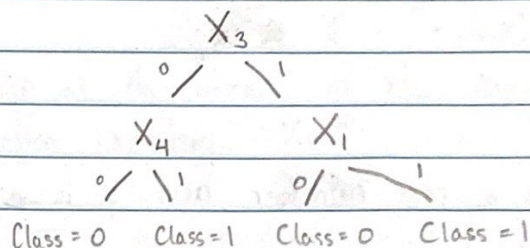 X₃
0 1
X₄ X₁
0 1 0 1
Class = 0 Class = 1 Class = 0 Class = 1